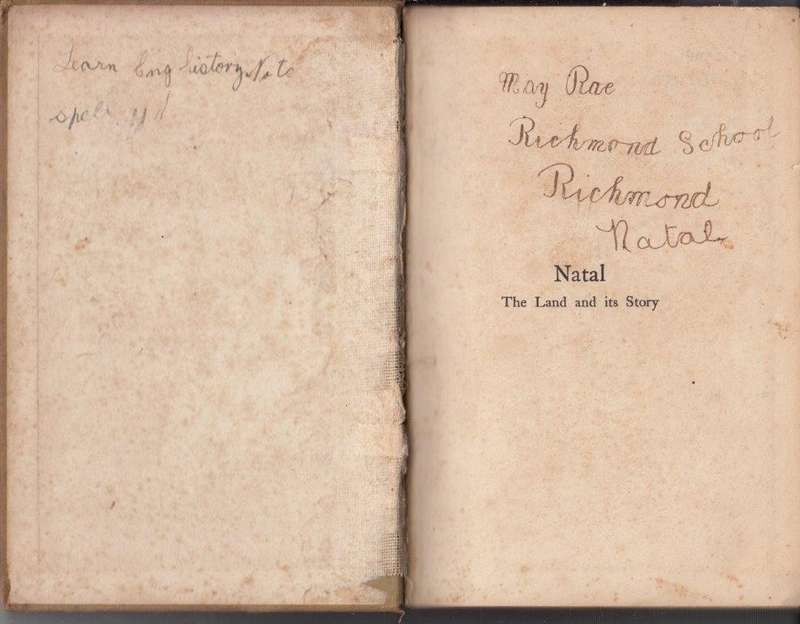 Learn Eng history Note
May Rae
Richmond School
Richmond
Natal
Natal
The Land and its Story